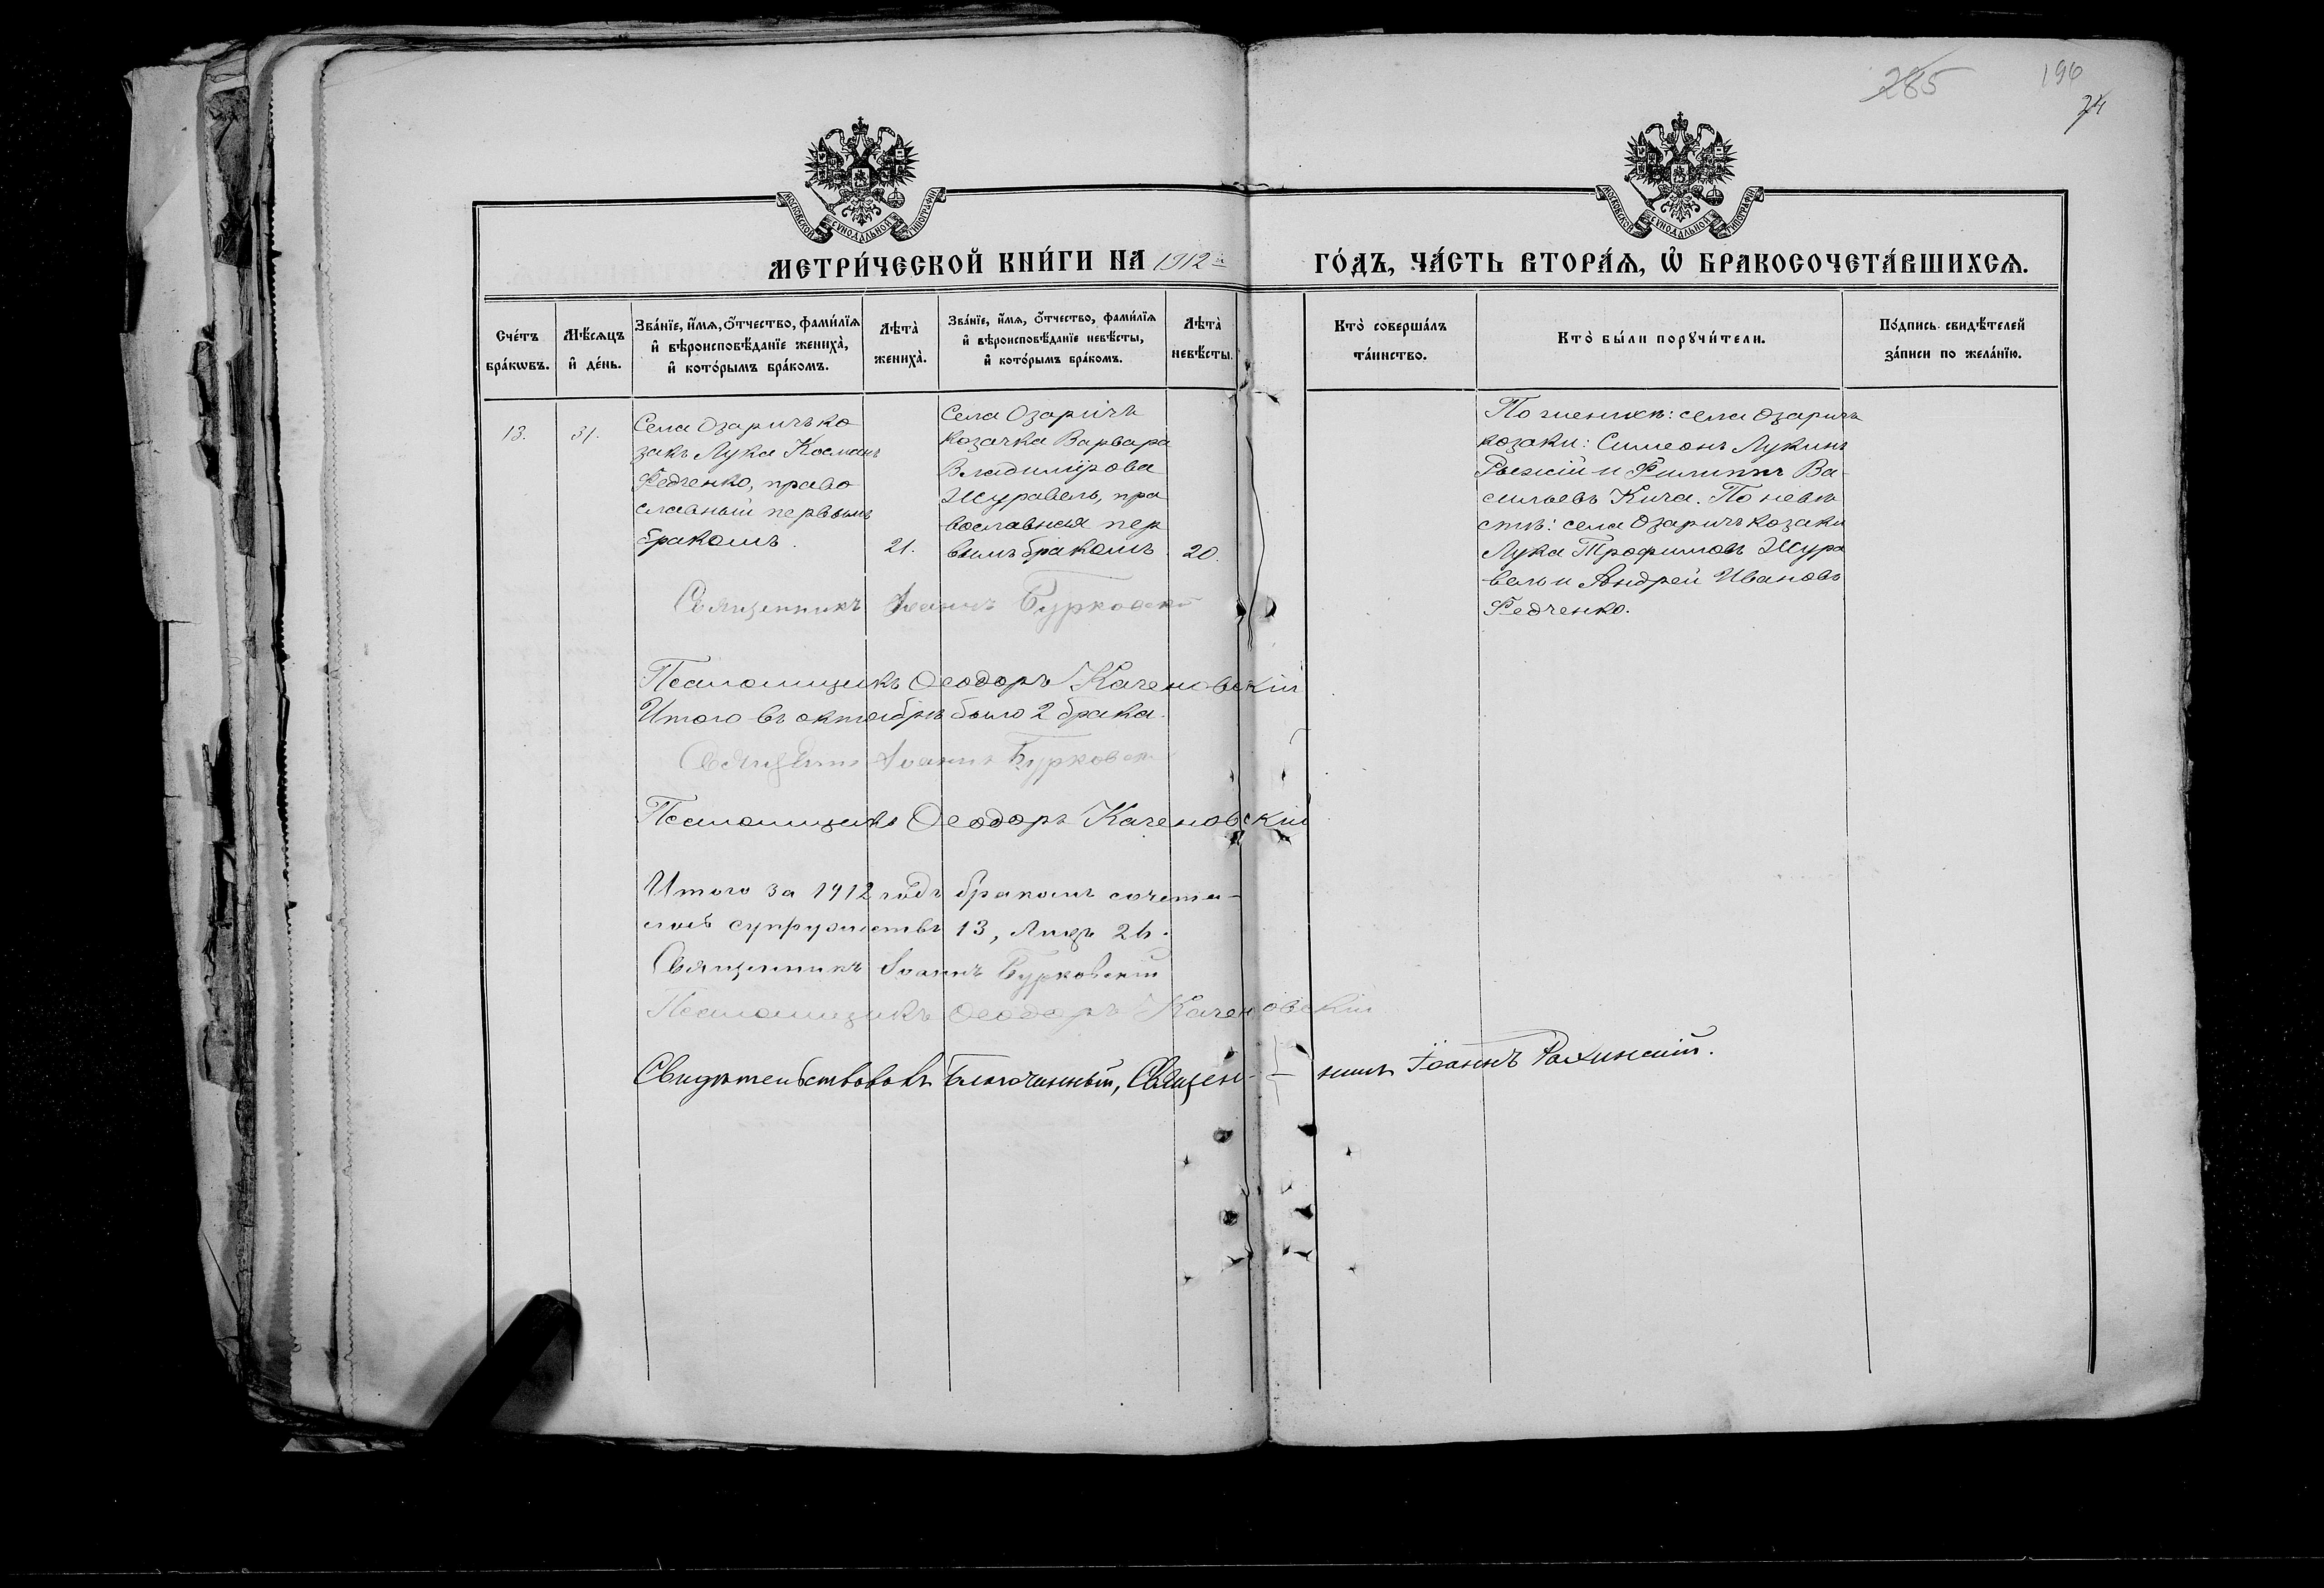 285
196
74
МОСКОВСКОЙ СѴНОДАЛЬНОЙ ТИПОГРАФІИ
МОСКОВСКОЙ СѴНОДАЛЬНОЙ ТИПОГРАФІИ
МЕТРИ́ЧЕСКОЙ КНИ́ГИ НА 1912 й
ГО́ДЪ, ЧА́СТЬ ВТОРА́Ѧ, Ѡ҆ БРАКОСОЧЕТА́ВШИХСѦ.
Сче́тъ бра́кѡвъ.
Мѣ́сѧцъ и҆ де́нь.
Зва́нїе, и҆́мѧ, ѻ҆́тчество, фами́лїѧ и҆ вѣроисповѣ́данїе жениха̀, и҆ кото́рымъ бра́комъ.
Лѣта̀ жениха̀.
Зва́нїе, и҆́мѧ, ѻ҆́тчество, фами́лїѧ и҆ вѣроисповѣ́данїе невѣ́сты, и҆ кото́рымъ бра́комъ.
Лѣта̀ невѣ́сты.
Кто̀ соверша́лъ та́инство.
Кто̀ бы́ли порꙋчи́тели.
По́дпись свидѣ́телей за́писи по жела́нїю.
13.
31.
Села Озаричъ ко
закъ Лука Косминъ
Федченко, право
славный первымъ
бракомъ.
21.
Села Озаричъ
козачка Варвара
Владимірова
Журавель, пра
вославная пер
вымъ бракомъ.
20.
По женихѣ: села Озаричъ
козаки: Симеонъ Лукинъ
Рыжій и Филиппъ Ва-
сильевъ Кича. По невѣ
стѣ: села Озаричъ козаки
Лука Трофимовъ Жура
вель и Андрей Ивановъ
Федченко.
Священникъ Іоаннъ Бурковскій
Псаломщикъ Ѳеодоръ Каченовскій
Итого въ октябрѣ было 2 брака.
Священник Іоаннъ Бурковскій
Псаломщикъ Ѳеодоръ Каченовскій
Итого за 1912 годъ бракомъ сочета-
лось супружествъ 13, лицъ 26.
Священникъ Іоаннъ Бурковскій
Псаломщикъ Ѳеодоръ Каченовскій
Свидѣтельствовалъ Благочинный, Священ-
никъ Іоаннъ